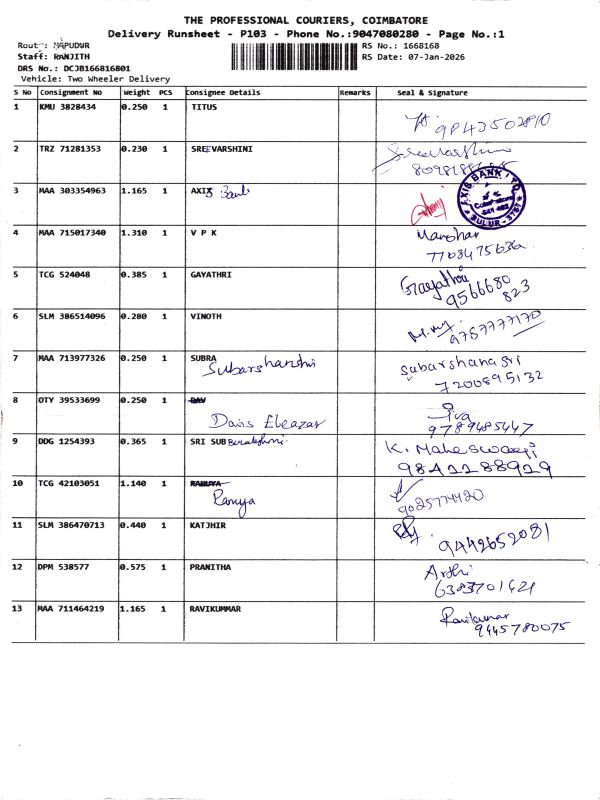 THE PROFESSIONAL COURIERS, COIMBATORE
Delivery Runsheet - P103 - Phone No.:9047080280 - Page No.:1
Route: MAPUDUR
RS No.: 1668168
Staff: RANJITH
RS Date: 07-Jan-2026
DRS No.: DCJB166816801
Vehicle: Two Wheeler Delivery
S No Consignment No Weight PCS Consignee Details Remarks Seal & Signature
1 KMU 3828434 0.250 1 TITUS
9842502810
2 TRZ 71281353 0.230 1 SREEVARSHINI Sreevarshini
3 MAA 303354963 1.165 1 AXIS Bank
AXIS BANK LTD
SULUR
4 MAA 715017340 1.310 1 V P K Manohar
7708475636
5 TCG 524048 0.385 1 GAYATHRI Gayathri
9566680
823
6 SLM 386514096 0.280 1 VINOTH
9787777170
7 MAA 713977326 0.250 1 SUBRA Subarshanasri
Subarshanshi 7200895132
8 OTY 39533699 0.250 1 DAV
Davis Eleazar 9789485447
9 DDG 1254393 0.365 1 SRI SUB K. Maheswari
9842288929
10 TCG 42103051 1.140 1 RAMUYA
Ramya 9025774420
11 SLM 386470713 0.440 1 KATJHIR
9442652081
12 DPM 538577 0.575 1 PRANITHA Arthi
6383701421
13 MAA 711464219 1.165 1 RAVIKUMMAR Ravikumar
9445780075